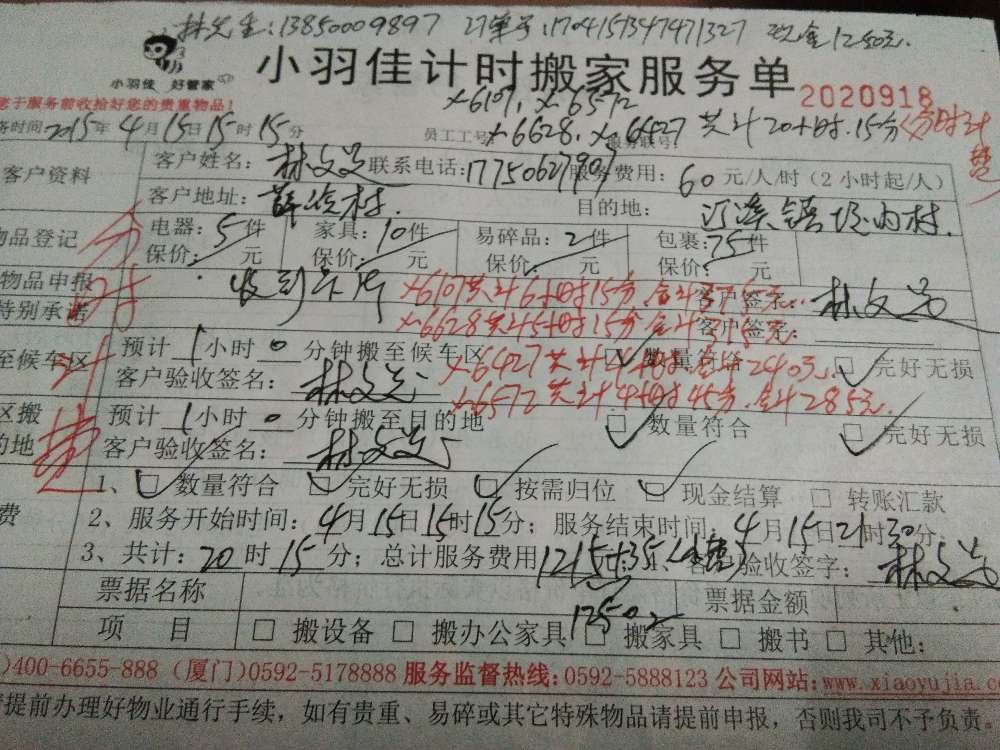 林先生:13850009897 订单号:170415134747132​7 现金1250元.
小羽佳 好管家
小羽佳计时搬家服务单
2020918
于服务前收拾好您的贵重物品!
x-6107, x-6572
务时间2015年4月15日15时15分 员工工号 x-6628, x-6427 共计20小时.15分(分时计费
客户资料 客户姓名: 联系电话:17750627907 服务费用: 60元/人/时(2小时起/人)
客户地址: 目的地:
物品登记 电器:5件 家具:10件 易碎品:2件 包裹:75件
保价: 元 保价: 元 保价: 元 保价: 元
分时计费
物品申报 x-6107共计6小时15分.合计375元. 客户签字:
特别承诺 x-6628共计5小时15分.合计315元. 客户签字:
至候车区 预计1小时0分钟搬至候车区 数量符合 完好无损
客户验收签名: x-6427共计4小时.合计240元.
x-6572共计4小时45分.合计285元.
区搬 预计1小时0分钟搬至目的地 数量符合 完好无损
的地 客户验收签名:
1、数量符合 完好无损 按需归位 现金结算 转账汇款
费 2、服务开始时间:4月15日15时15分;服务结束时间:4月15日21时30分.
3、共计:20时15分;总计服务费用1215+35 客户验收签字:
票据名称 1250元 票据金额
项 目 搬设备 搬办公家具 搬家具 搬书 其他:
)400-6655-888 (厦门)0592-5178888 服务监督热线:0592-5888123 公司网站:www.xiaoyujia.c
提前办理好物业通行手续,如有贵重、易碎或其它特殊物品请提前申报,否则我司不予负责。